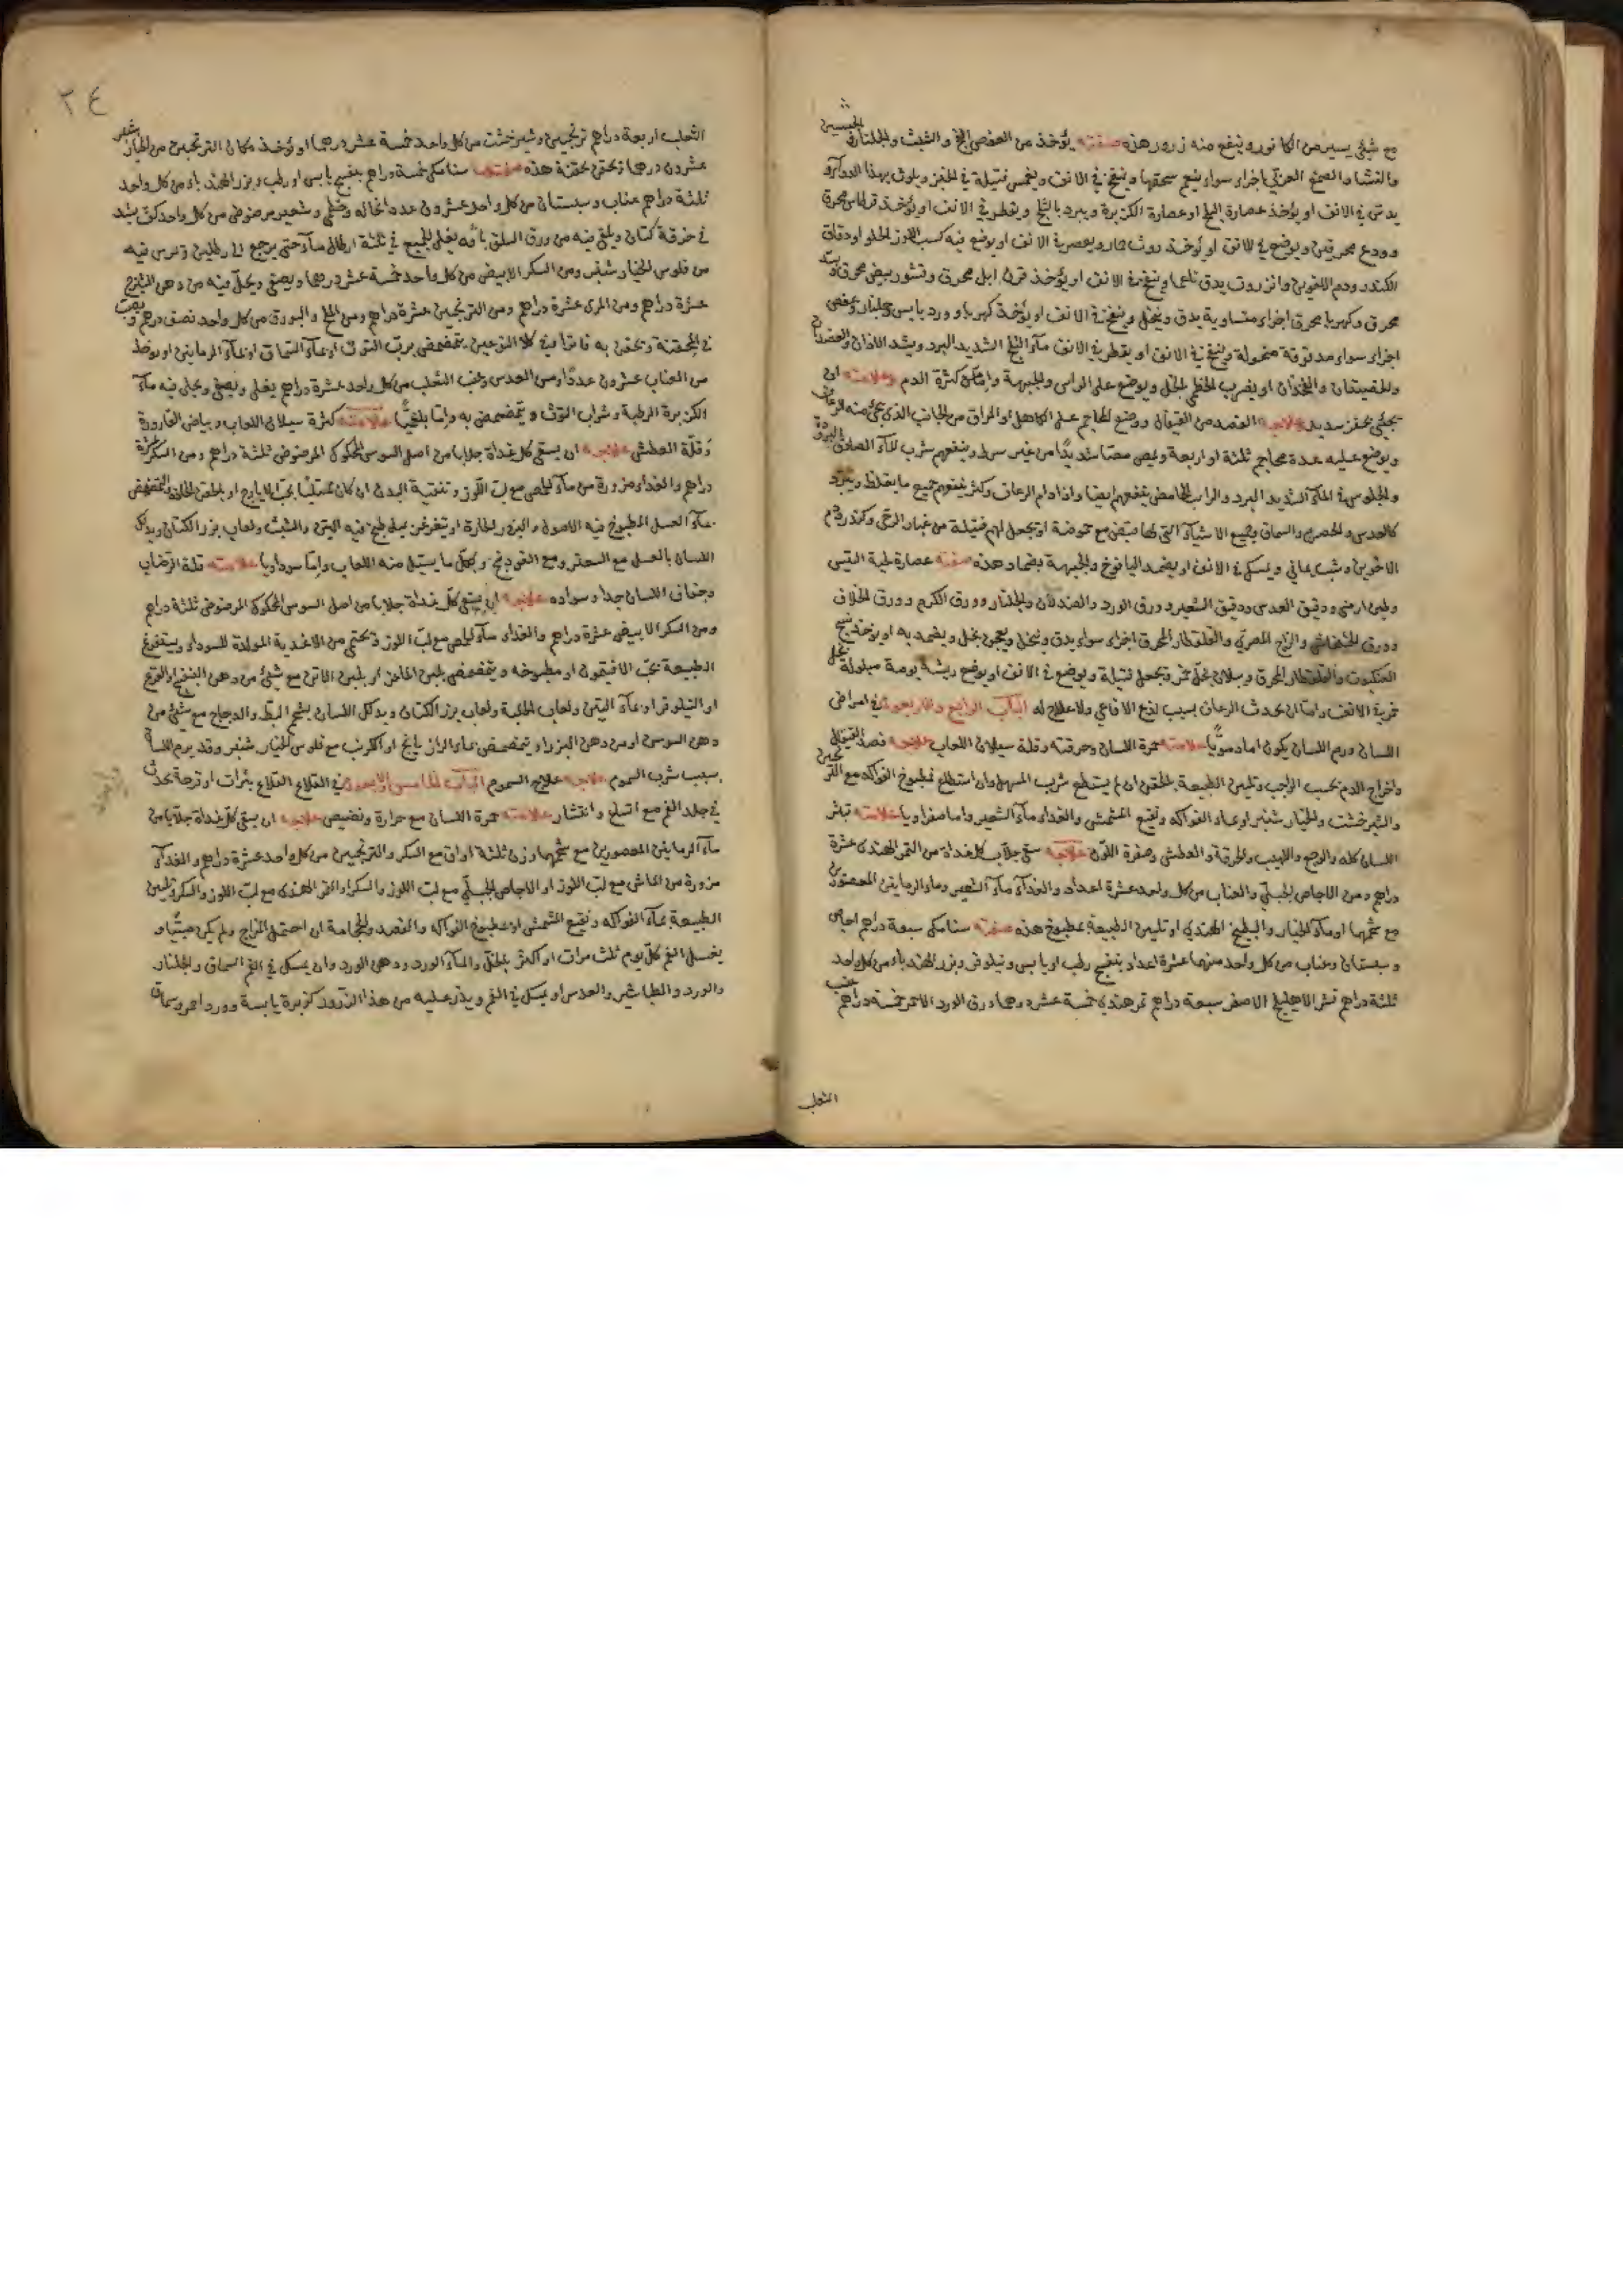 مع شيئ يسير من الكافور وينفع منه زرور هذه صفته يؤخذ من العفص الفج والشبث والجلنار
والنشا والصمغ العربي اجزاء سواء ينعم سحقها وينفخ في الانف ويغمس فتيلة في الخبز ويلوث بهذا الدواء
يدس في الانف او يؤخذ عصارة البلح او عصارة الكزبرة ويبرد بالثلج ويقطر في الانف او يؤخذ قرطاس محرق
وودع محرقين ويوضع في الانف او يؤخذ روث حمار ويعصر في الانف او يوضع فيه كسب الجوز الحلو او دقاق
الكندر ودم الاخوين وانزروت يدق ناعما وينفخ في الانف او يؤخذ قرن ابل محرق وقشور بيض محرق
محرق وكهربا محرق اجزاء متساوية يدق وينخل وينفخ في الانف او يؤخذ كهربا وورد يابس وجلنار وعفص
اجزاء سواء مدقوقة منخولة وينفخ في الانف او يقطر في الانف ماء الثلج الشديد البرد ويشد الاذان والعضدان
والخصيتان والفخذان او يضرب الخطمي بالخل ويوضع على الراس والجبهة واما من كثرة الدم وعلامته ان
يجئ بحفز شديد علاجه الفصد من القيفال ووضع المحاجم على الكاهل او المراق من الجانب الذي يجئ منه الرعاف
ويوضع عليه عدة محاجم ثلثة او اربعة ويمص مصا شديدا من غير شرط وينفعهم شرب الماء الصادق البرد
والجلوس في الماء الشديد البرد والراب الحامض ينفعهم ايضا واذا دام الرعاف وكثر ينفعهم جميع ما يغلظ ويبرد
كالعدس والحصرم والسماق وجميع الاشياء التي لها قبض مع حموضة او يجعل لهم فتيلة من غبار الرحى وكندر ودم
الاخوين وشب يماني ويمسك في الانف او يضمد اليافوخ والجبهة بضماد هذه صفته عصارة لحية التيس
وطين ارمني ودقيق العدس ودقيق الشعير وورق الورد والصندلان والجلنار وورق الكرم وورق الخلاف
وورق الخشخاش والزاج المصري والقلقطار المحرق اجزاء سواء يدق وينخل ويعجن بخل ويضمد به او يؤخذ نسج
العنكبوت والقلقطار المحرق ويبلان بخل خمر ويجعل فتيلة ويوضع في الانف او يوضع ريشة بومة مبلولة بخل
خمر في الانف واما ان يحدث الرعاف بسبب لذع الافاعي ولا علاج له الباب الرابع والاربعون في امراض
اللسان ورم اللسان يكون اما دمويا علامته حمرة اللسان وحرقته وقلة سيلان اللعاب علاجه فصد القيفال
واخراج الدم بحسب الواجب وتليين الطبيعة بالحقن ان لم يستطع شرب المسهل وان استطاع فمطبوخ الفواكه مع الترنجبين
والشيرخشت والخيار شنبر او بماء الفواكه ونقيع المشمش والغذاء ماء الشعير واما صفراويا علامته تبثر
اللسان كله والوجع واللهيب والحرقة والعطش وصفرة اللون علاجه سقي جلاب كل غداة من التمر الهندي عشرة
دراهم ومن الاجاص الجبلي والعناب من كل واحد عشرة اعداد والغذاء ماء الشعير وماء الرمانين المعصورين
مع شحمها او ماء الخيار والبطيخ الهندي او تليين الطبيعة بمطبوخ هذه صفته سنامكي سبعة دراهم اجاص
وسبستان وعناب من كل واحد منهما عشرة اعداد بنفسج رطب او يابس ونيلوفر وبزر الهندباء من كل واحد
ثلثة دراهم قشر الاهليلج الاصفر سبعة دراهم تمر هندي خمسة عشر درهما ورق الورد الاحمر خمسة دراهم عنب
الثعلب
٢٤
الثعلب اربعة دراهم ترنجبين وشيرخشت من كل واحد خمسة عشر درهما او يؤخذ مكان الترنجبين من الخيار شنبر
عشرون درهما او تحقن بحقنة هذه صفتها سنامكي خمسة دراهم بنفسج يابس او رطب وبزر الهندباء من كل واحد
ثلثة دراهم عناب وسبستان من كل واحد عشرون عددا نخالة وخطمي وشعير مرضوض من كل واحد كف يشد
في خرقة كتان ويلقى فيه من ورق السلق باقه يغلى الجميع في ثلثة ارطال ماء حتى يرجع الى رطلين ويمرس فيه
من فلوس الخيار شنبر ومن السكر الابيض من كل واحد خمسة عشر درهما ويصفى ويحل فيه من دهن الشيرج
عشرة دراهم ومن المري عشرة دراهم ومن الترنجبين عشرة دراهم ومن الملح والبورق من كل واحد نصف درهم ويصب
في المحقنة ويحقن به فاترا في كلا النوعين يتمضمض برب التوث او بماء السماق او بماء الرمانين او يؤخذ
من العناب عشرون عددا ومن العدس وعنب الثعلب من كل واحد عشرة دراهم يغلى ويصفى ويحل فيه ماء
الكزبرة الرطبة وشراب التوث ويتمضمض به واما بلغميا علامته كثرة سيلان اللعاب وبياض القارورة
وقلة العطش علاجه ان يسقى كل غداة جلابا من اصل السوس المحكوك المرضوض ثلثة دراهم ومن السكر عشرة
دراهم والغذاء مزورة من ماء الحمص مع لب اللوز وتنقية البدن ان كان ممتليا بحب الايارج او بالحقن الحادة والتمضمض
بماء العسل المطبوخ فيه الاصول والبزور الحارة او يتغرغر بماء طبخ فيه التين والشبث ولعاب بزر الكتان ويدلك
اللسان بالعسل مع السعتر ومع الفودنج وبكل ما يسيل منه اللعاب واما سوداويا علامته قلة الرضاب
وجفاف اللسان جدا وسواده علاجه ان يسقى كل غداة جلابا من اصل السوس المحكوك المرضوض ثلثة دراهم
ومن السكر الابيض عشرة دراهم والغذاء ماء الحمص مع لب اللوز ويحتمي من الاغذية المولدة للسوداء ويستفرغ
الطبيعة بحب الافتيمون او مطبوخه ويتمضمض بلبن الماعز او بلبن الاتن مع شيئ من دهن البنفسج او القرع
او النيلوفر او بماء التين ولعاب الحلبة ولعاب بزر الكتان ويدلك اللسان بشحم البط والدجاج مع شيئ من
دهن السوسن او من دهن البزر او يتمضمض بماء الرازيانج او الكرنب مع فلوس الخيار شنبر وقد يرم اللسان
بسبب شرب السموم علاجه علاج السموم الباب الخامس والاربعون في القلاع القلاع بثرات او قرحة تحدث
في جلد الفم مع اتساع وانتشار علامته حمرة اللسان مع حرارة ونضيض علاجه ان يسقى كل غداة جلابا من
ماء الرمانين المعصورين مع شحمها وزن ثلثة اواق مع السكر والترنجبين من كل واحد عشرة دراهم والغذاء
مزورة من الماش مع لب اللوز او الاجاص الجبلي مع لب اللوز والسكر او التمر الهندي مع لب اللوز والسكر وتليين
الطبيعة بماء الفواكه ونقيع المشمش او بمطبوخ الفواكه والفصد والحجامة ان احتمل المزاج ولم يكن صبيا و
يغسل الفم كل يوم ثلث مرات او اكثر بالخل والماء الورد ودهن الورد وان يمسك في الفم السماق والجلنار
والورد والطباشير والعدس او يمسك في الفم ويذر عليه من هذا الذرور كزبرة يابسة وورد احمر وسماق